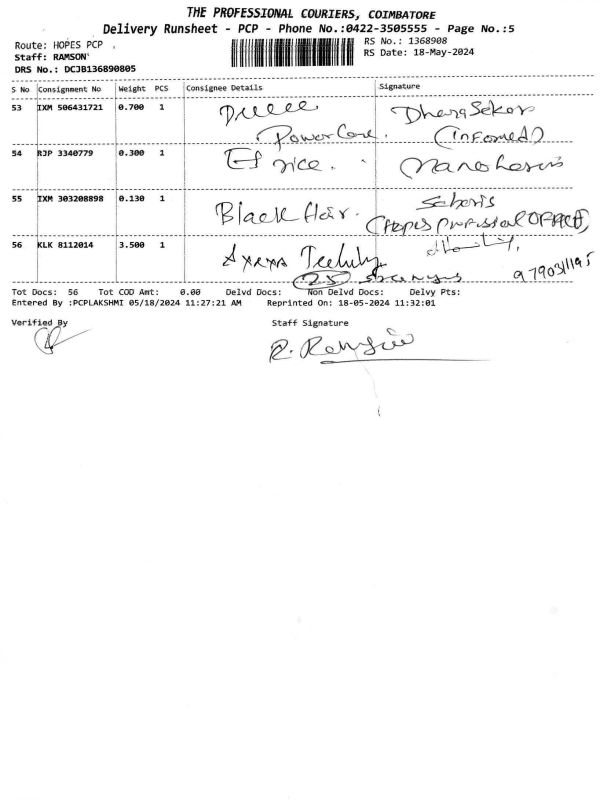 THE PROFESSIONAL COURIERS, COIMBATORE
Delivery Runsheet - PCP - Phone No.:0422-3505555 - Page No.:5
Route: HOPES PCP
RS No.: 1368908
Staff: RAMSON
RS Date: 18-May-2024
DRS No.: DCJB136890805
S No Consignment No Weight PCS Consignee Details Signature
53 IXM 506431721 0.700 1
Power Care. (Informed)
54 RJP 3340779 0.300 1
55 IXM 303208898 0.130 1 Black Hair.
56 KLK 8112014 3.500 1
25 9790311195
Tot Docs: 56 Tot COD Amt: 0.00 Delvd Docs: Non Delvd Docs: Delvy Pts:
Entered By :PCPLAKSHMI 05/18/2024 11:27:21 AM Reprinted On: 18-05-2024 11:32:01
Verified By Staff Signature